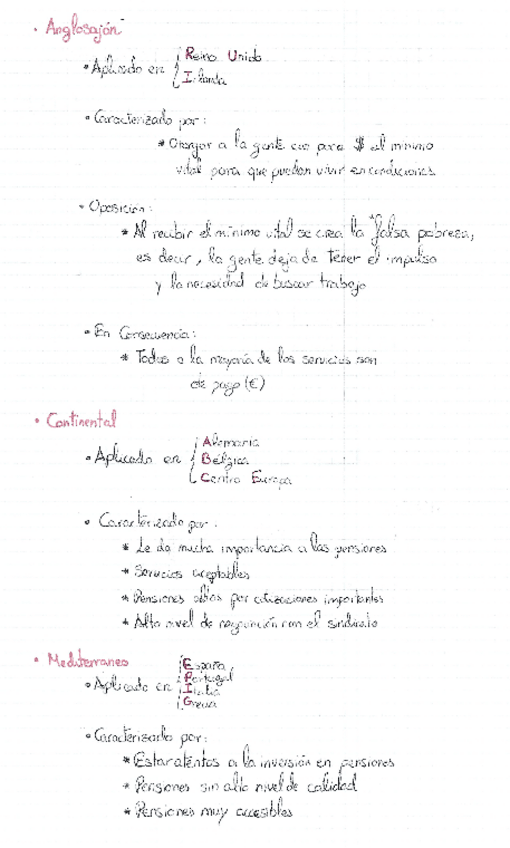 • Anglosajón
• Aplicado en { Reino Unido
Irlanda
• Caracterizado por:
* Otorgar a la gente para $ al mínimo
vital para que puedan vivir en condiciones
• Oposición:
* Al recibir el mínimo vital se crea la "falsa pobreza,
es decir, la gente deja de tener el impulso
y la necesidad de buscar trabajo
• En Consecuencia:
* Todos o la mayoría de los servicios son
de pago (€)
• Continental
• Aplicado en { Alemania
Bélgica
Centro Europa
• Caracterizado por:
* Le da mucha importancia a las pensiones
* Servicios aceptables
* Pensiones altas por cotizaciones importantes
* Alto nivel de negociación con el sindicato
• Mediterraneo
• Aplicado en { España
Portugal
Italia
Grecia
• Caracterizado por:
* Estar atentos a la inversión en pensiones
* Pensiones sin alto nivel de calidad
* Pensiones muy accesibles